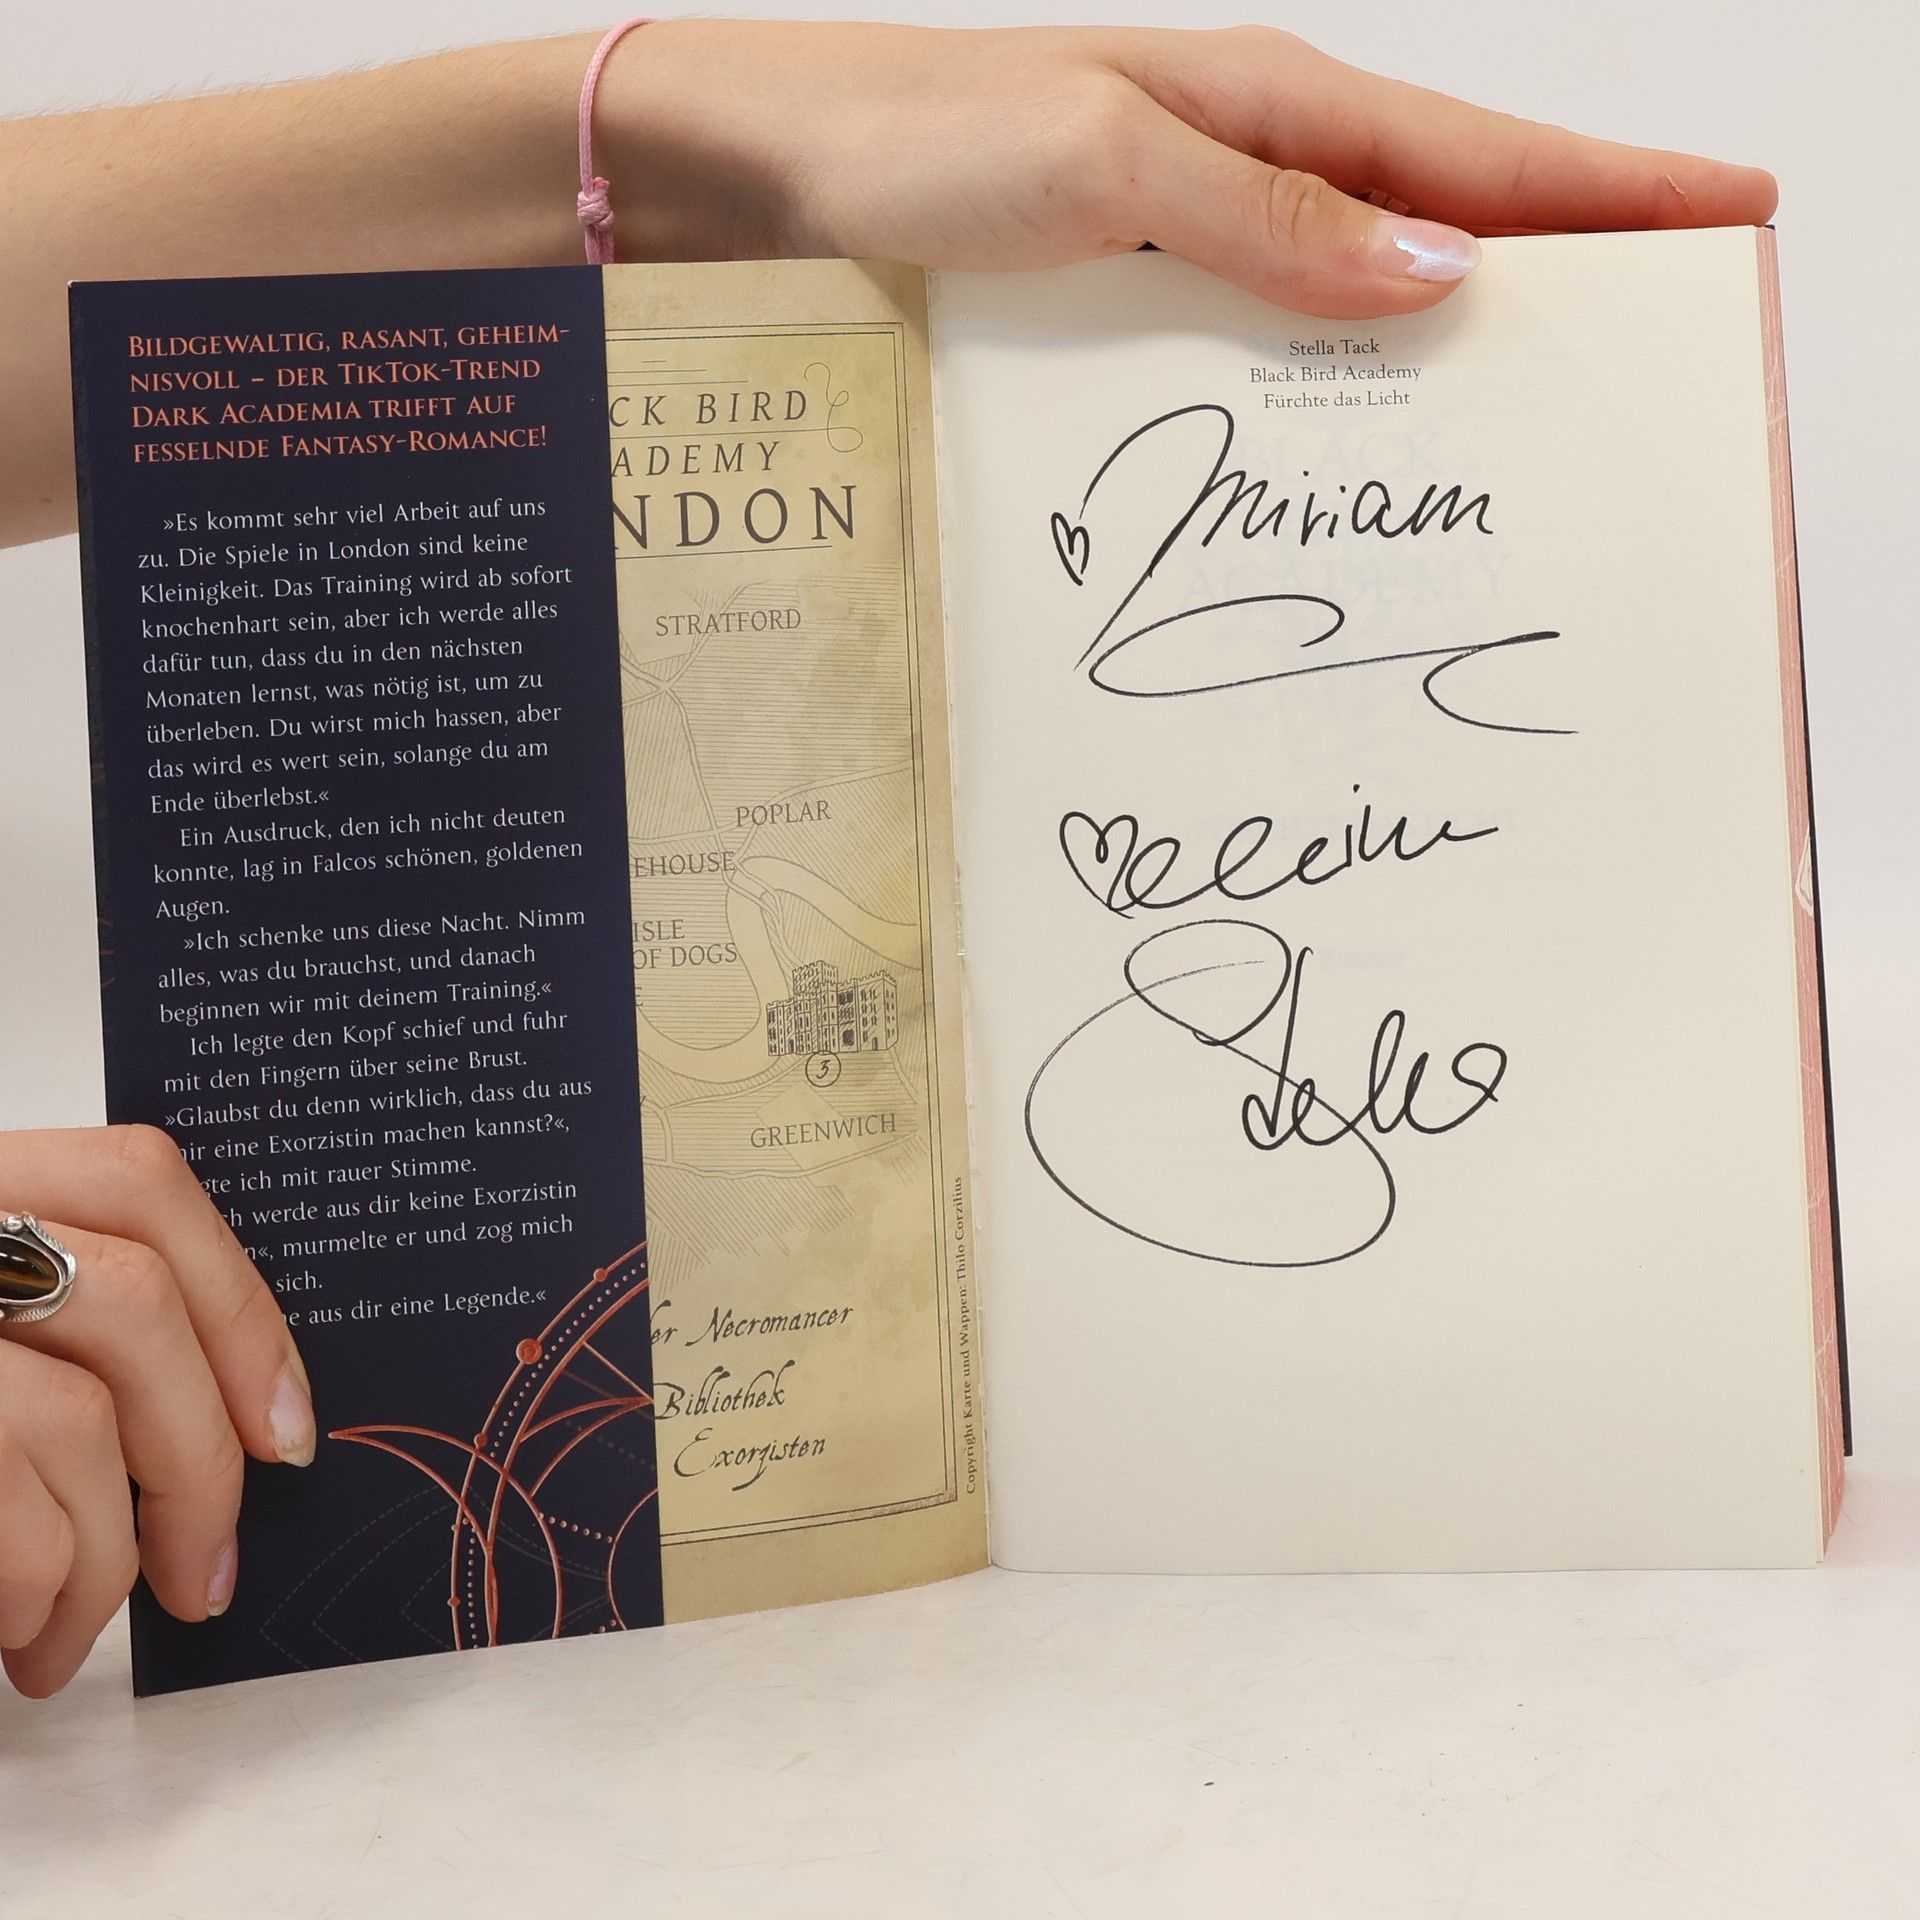 BILDGEWALTIG, RASANT, GEHEIM-
NISVOLL – DER TIKTOK-TREND
DARK ACADEMIA TRIFFT AUF
FESSELNDE FANTASY-ROMANCE!
»Es kommt sehr viel Arbeit auf uns
zu. Die Spiele in London sind keine
Kleinigkeit. Das Training wird ab sofort
knochenhart sein, aber ich werde alles
dafür tun, dass du in den nächsten
Monaten lernst, was nötig ist, um zu
überleben. Du wirst mich hassen, aber
das wird es wert sein, solange du am
Ende überlebst.«
Ein Ausdruck, den ich nicht deuten
konnte, lag in Falcos schönen, goldenen
Augen.
»Ich schenke uns diese Nacht. Nimm
alles, was du brauchst, und danach
beginnen wir mit deinem Training.«
Ich legte den Kopf schief und fuhr
mit den Fingern über seine Brust.
»Glaubst du denn wirklich, dass du aus
ir eine Exorzistin machen kannst?«,
gte ich mit rauer Stimme.
ch werde aus dir keine Exorzistin
n«, murmelte er und zog mich
sich.
e aus dir eine Legende.«
CK BIRD
ADEMY
NDON
STRATFORD
POPLAR
EHOUSE
ISLE
OF DOGS
E
3
GREENWICH
er Necromancer
Bibliothek
Exorzisten
Copyright Karte und Wappen: Thilo Corzilius
Stella Tack
Black Bird Academy
Fürchte das Licht
BLACK
ACADEMY
Miriam